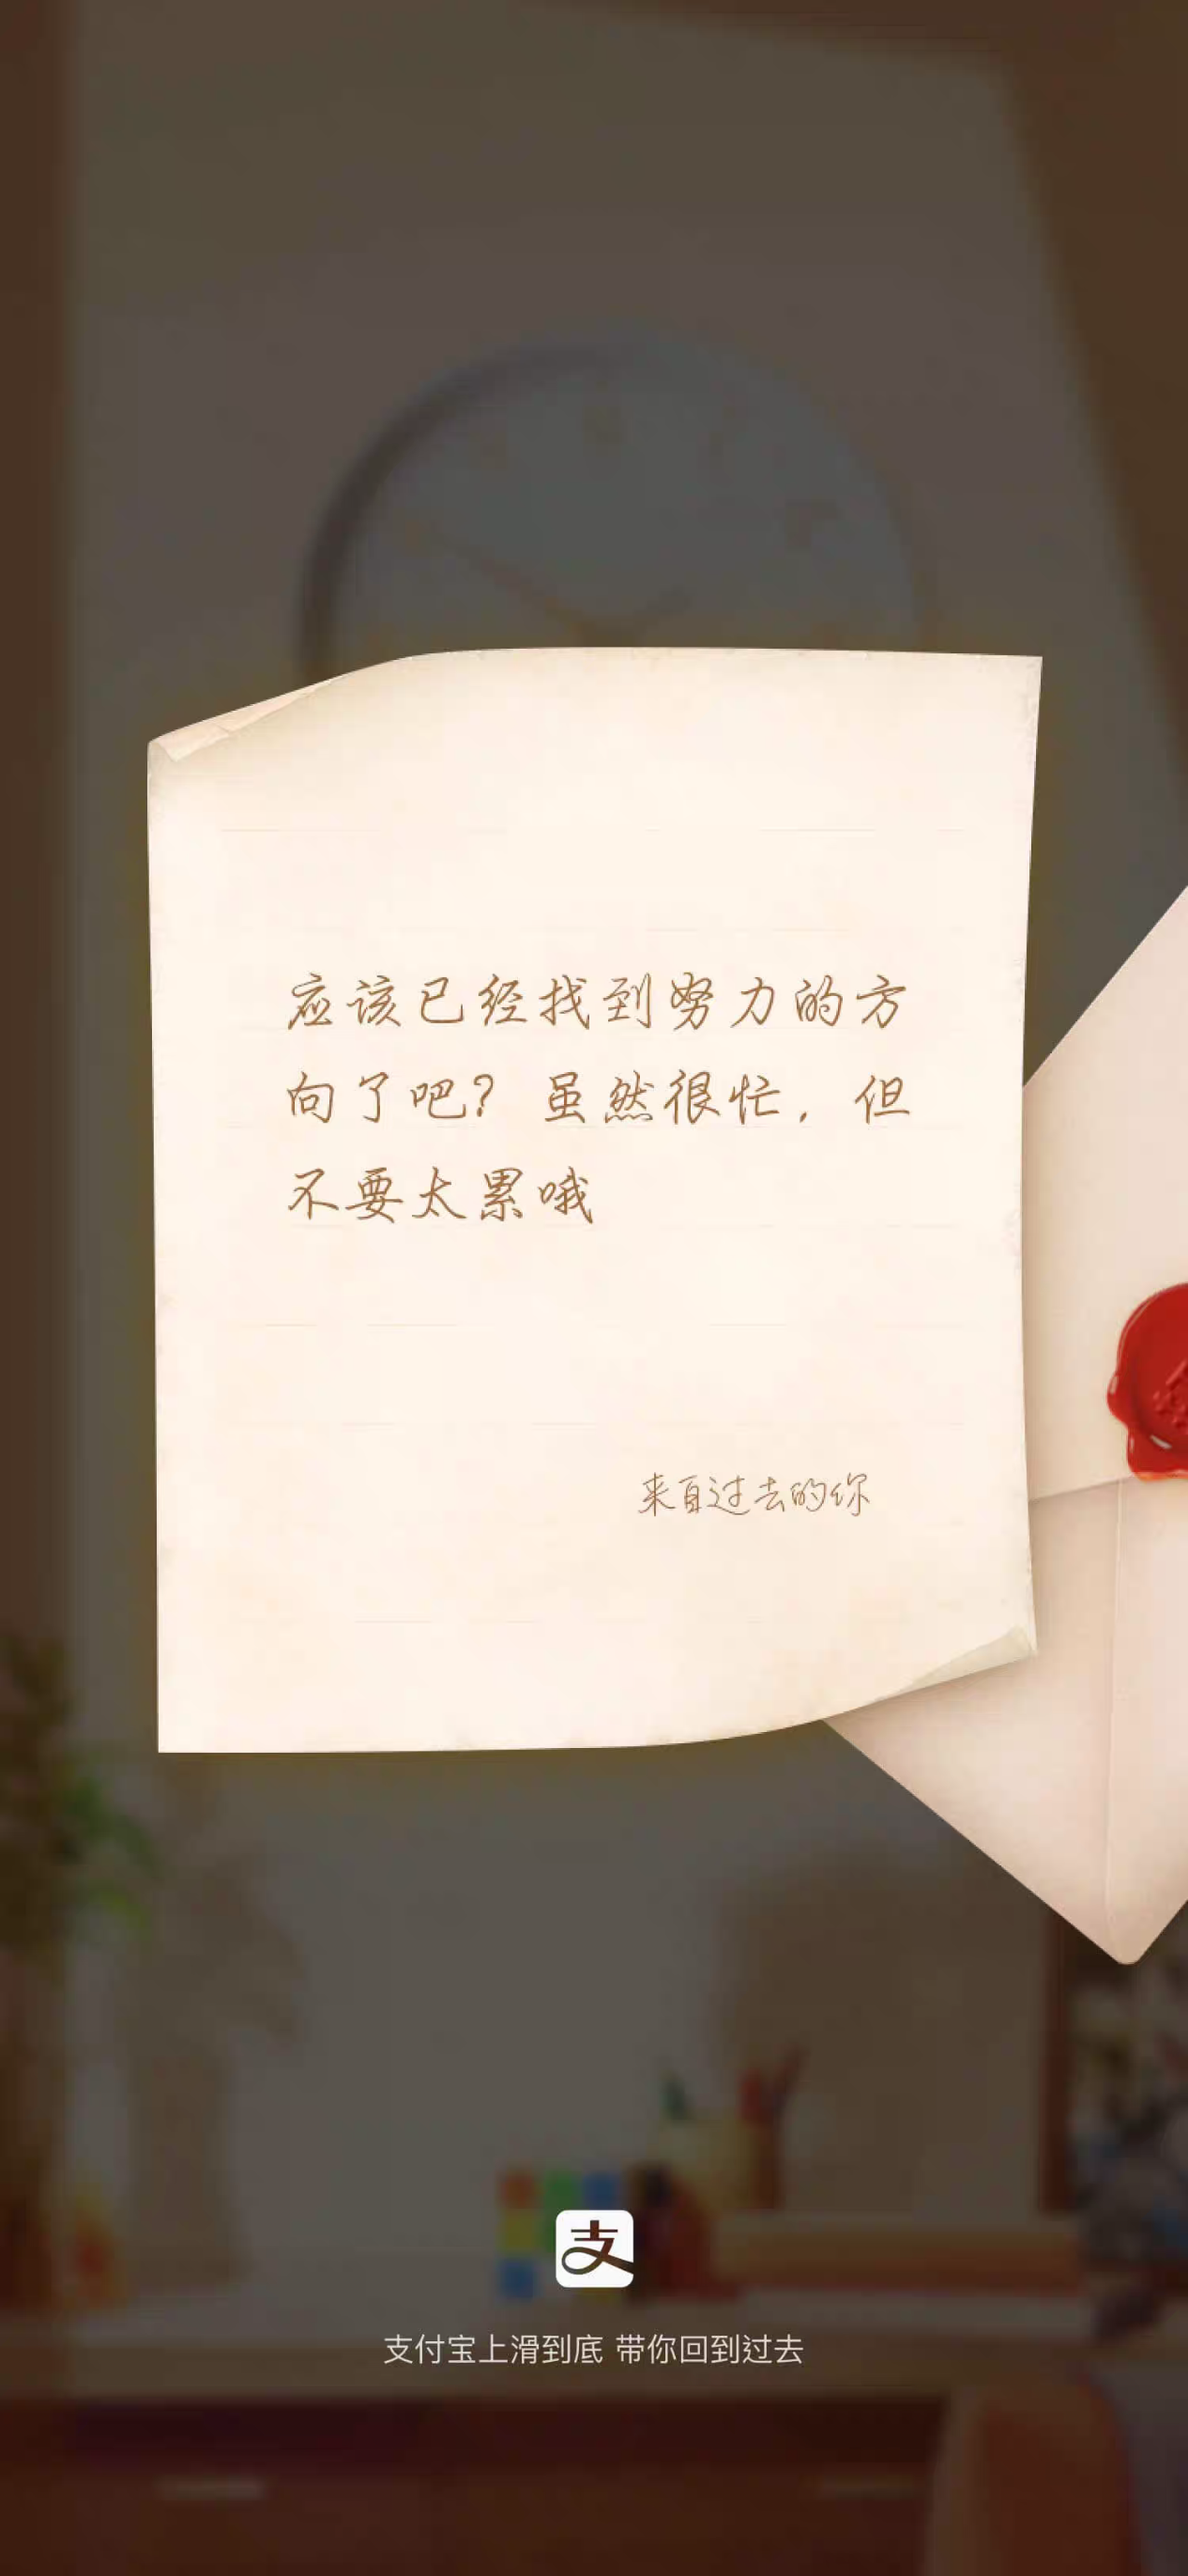 应该已经找到努力的方
向了吧？虽然很忙，但
不要太累哦
来自过去的你
支
支付宝上滑到底 带你回到过去